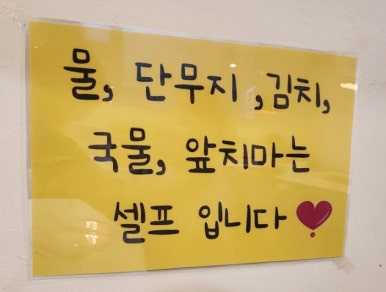 물, 단무지 ,김치,
국물, 앞치마는
셀프 입니다